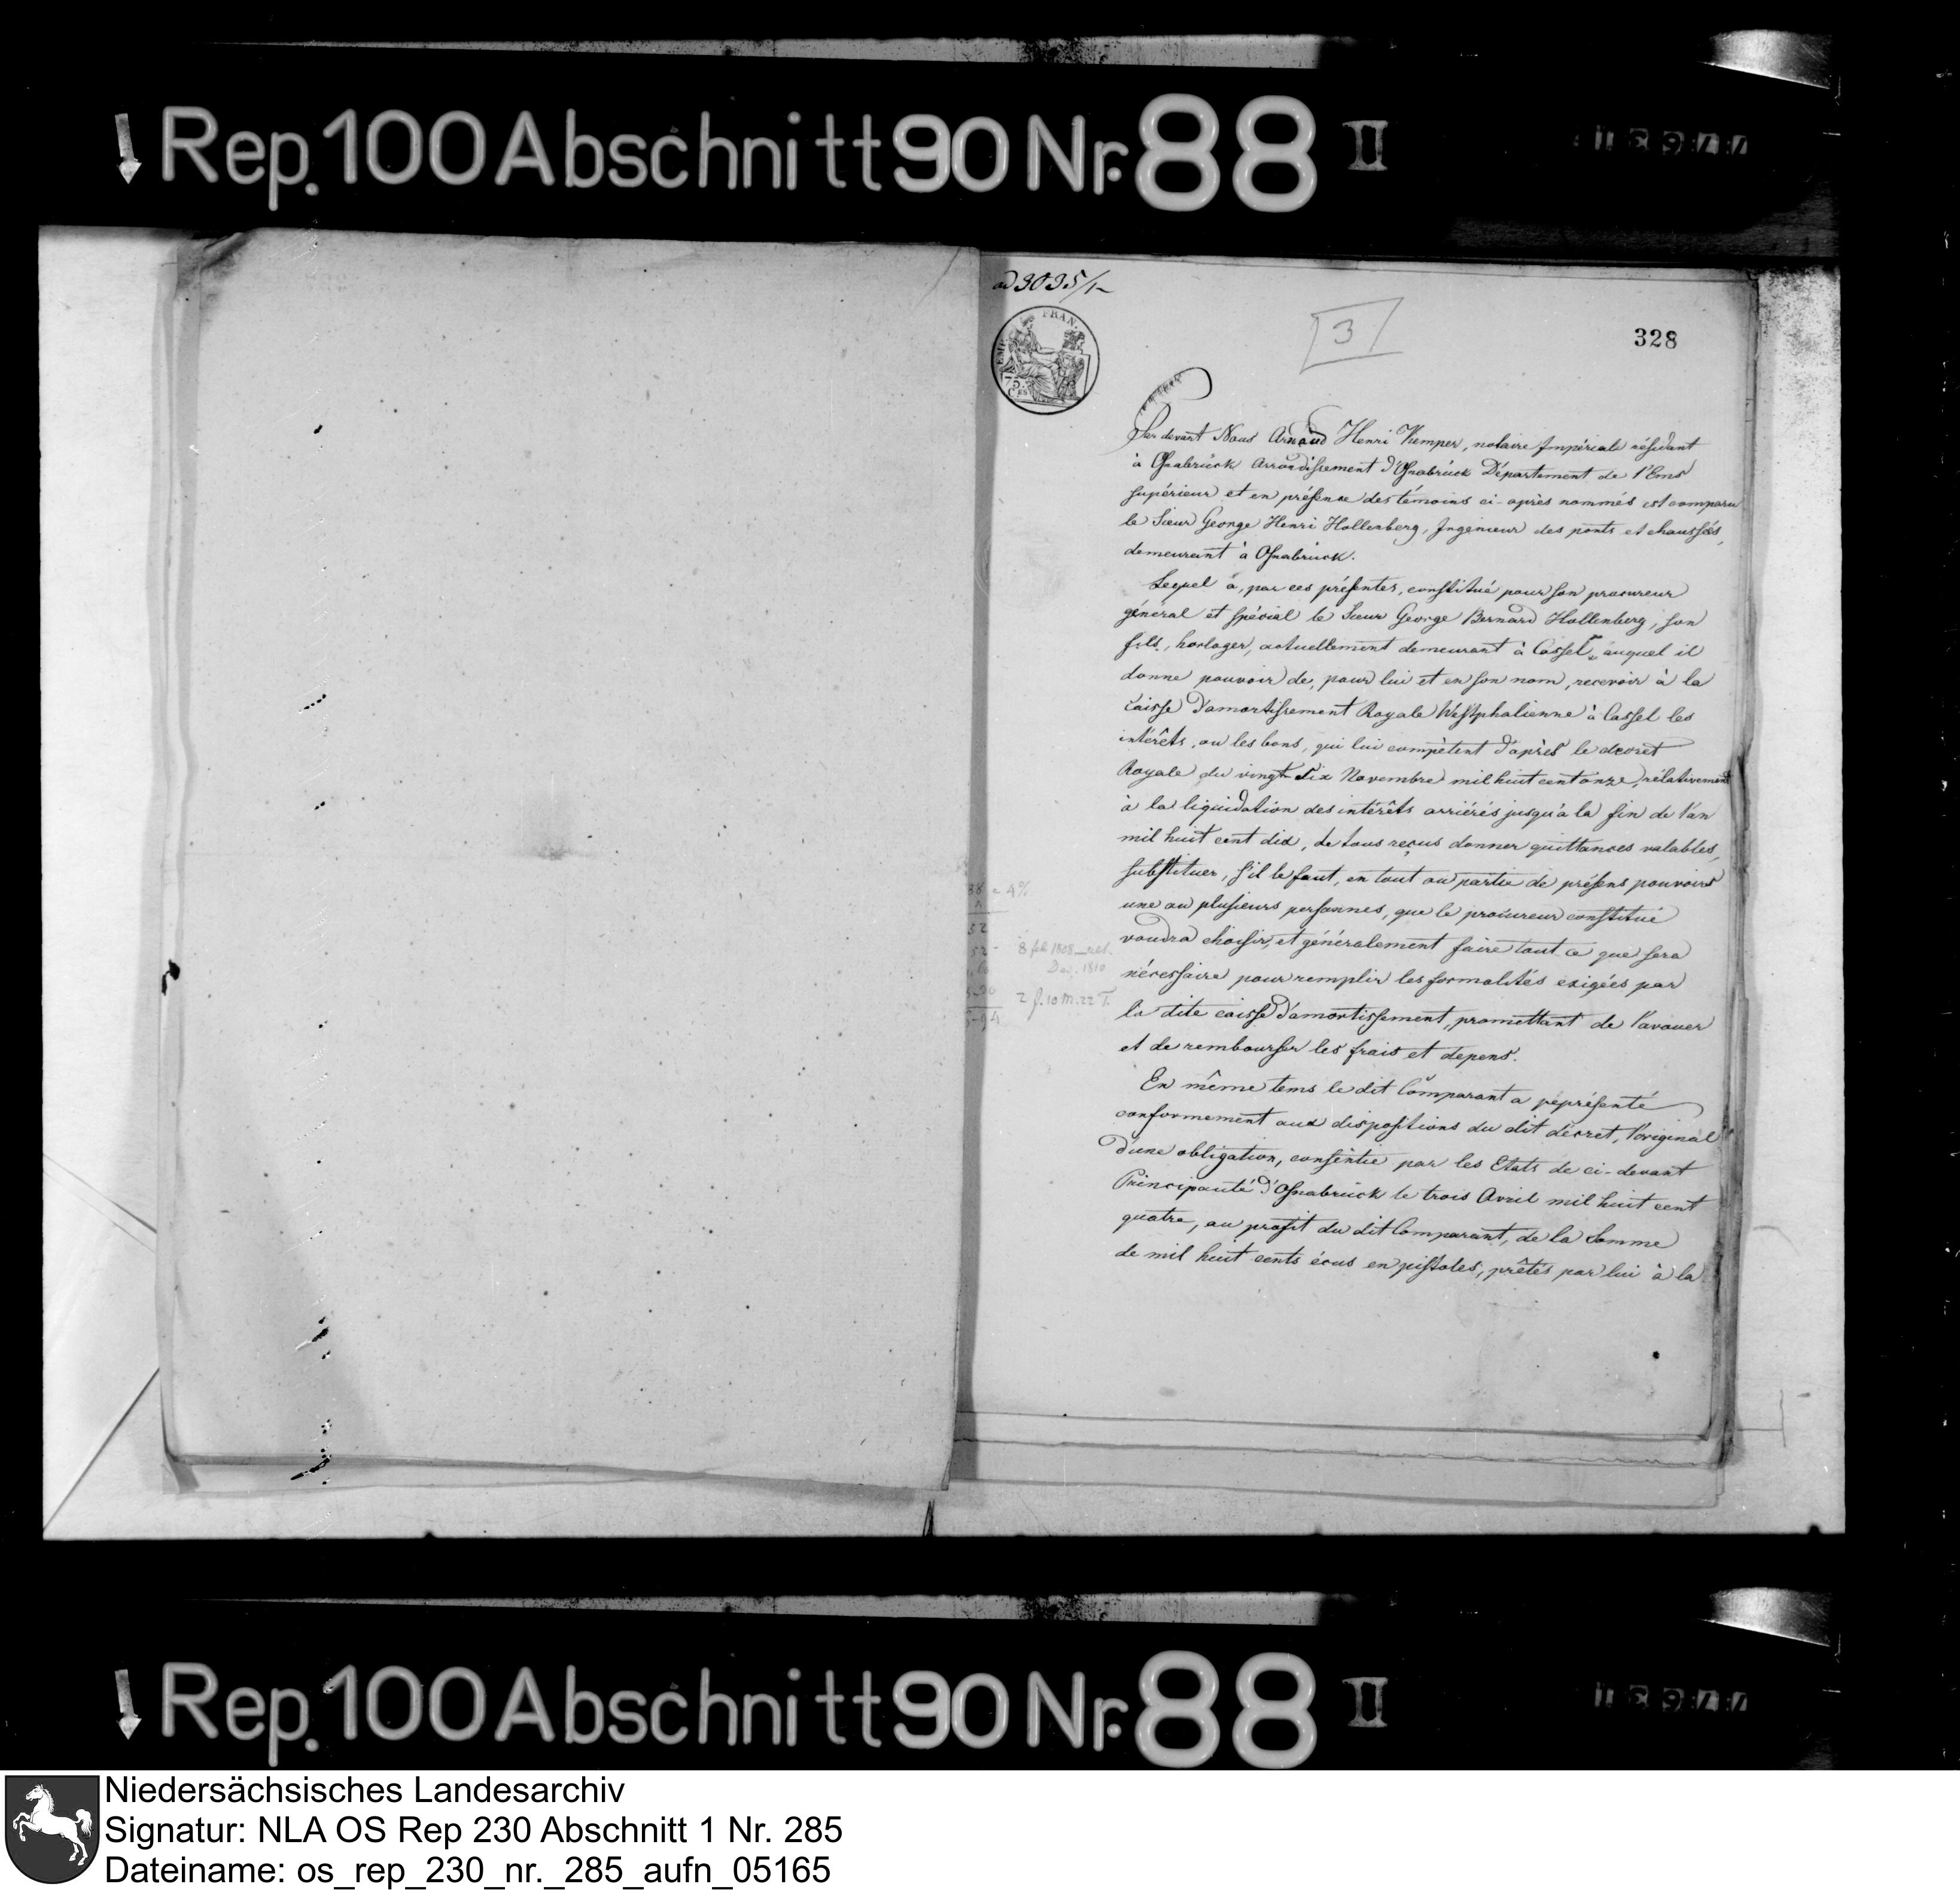 Rep. 100 Abschnitt 90 Nr. 88 II
ad 3035/1
EMP FRAN.
75.
CES
3
328
Par devant Nous Arnaud Henri Kemper, notaire Impériale résidant
à Osnabrück Arrondissement d'Osnabrück Département de l'Ems
supérieur et en présence des témoins ci-après nommés est comparu
le Sieur George Henri Hollenberg, Ingenieur des ponts et chaussés,
demeurant à Osnabrück.
Lequel à, par ces présentes, constitué pour son procureur
général et spécial le Sieur George Bernard Hollenberg, son
fils, horloger, actuellement demeurant à Cassel, auquel il
donne pouvoir de, pour lui et en son nom, recevoir à la
caisse d'amortissement Royale Westphalienne à Cassel les
intérêts, ou les bons, qui lui compètent d'après le decret
Royale du vingt Six Novembre mil huit cent onze, rélativement
à la liquidation des intérêts arriérés jusqu'à la fin de l'an
mil huit cent dix, de tous reçus donner quittances valables,
substituer, s'il le faut, en tout ou partie de présens pouvoirs
une ou plusieurs personnes, que le procureur constitué
voudra choisir, et généralement faire tout ce que sera
nécessaire pour remplir les formalités exigées par
la dite caisse d'amortissement, promettant de l'avouer
et de rembourser les frais et depens.
En même tems le dit Comparant a réprésenté
conformement aux dispositions du dit décret, l'original
d'une obligation, consentie par les Etats de ci-devant
Principauté d'Osnabrück le trois Avril mil huit cent
quatre, au profit du dit Comparant, de la Somme
de mil huit cents écus en pistoles, prêtés par lui à la
4%
52
52 - 8 feb 1808
Dec. 1810
2 J. 10 M. 22 T.
Rep. 100 Abschnitt 90 Nr. 88 II
Niedersächsisches Landesarchiv
Signatur: NLA OS Rep 230 Abschnitt 1 Nr. 285
Dateiname: os_rep_230_nr._285_aufn_05165